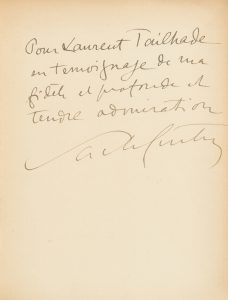 Pour Laurent Tailhade
en temoignage de ma
fidele et profonde et
tendre admiration